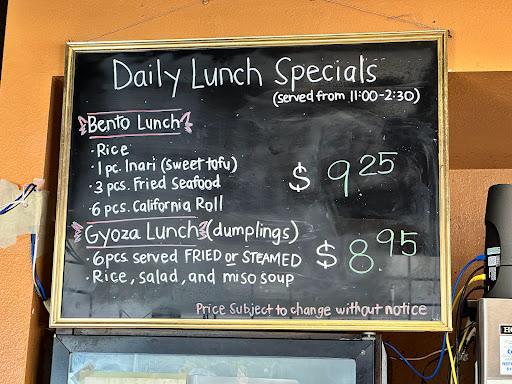 Daily Lunch Specials
(served from 11:00-2:30)
Bento Lunch
· Rice
· 1 pc. Inari (sweet tofu)
· 3 pcs. Fried Seafood
· 6 pcs. California Roll
$ 9.25
Gyoza Lunch (dumplings)
· 6 pcs. served FRIED or STEAMED
· Rice, salad, and miso soup
$ 8.95
Price Subject to change without notice